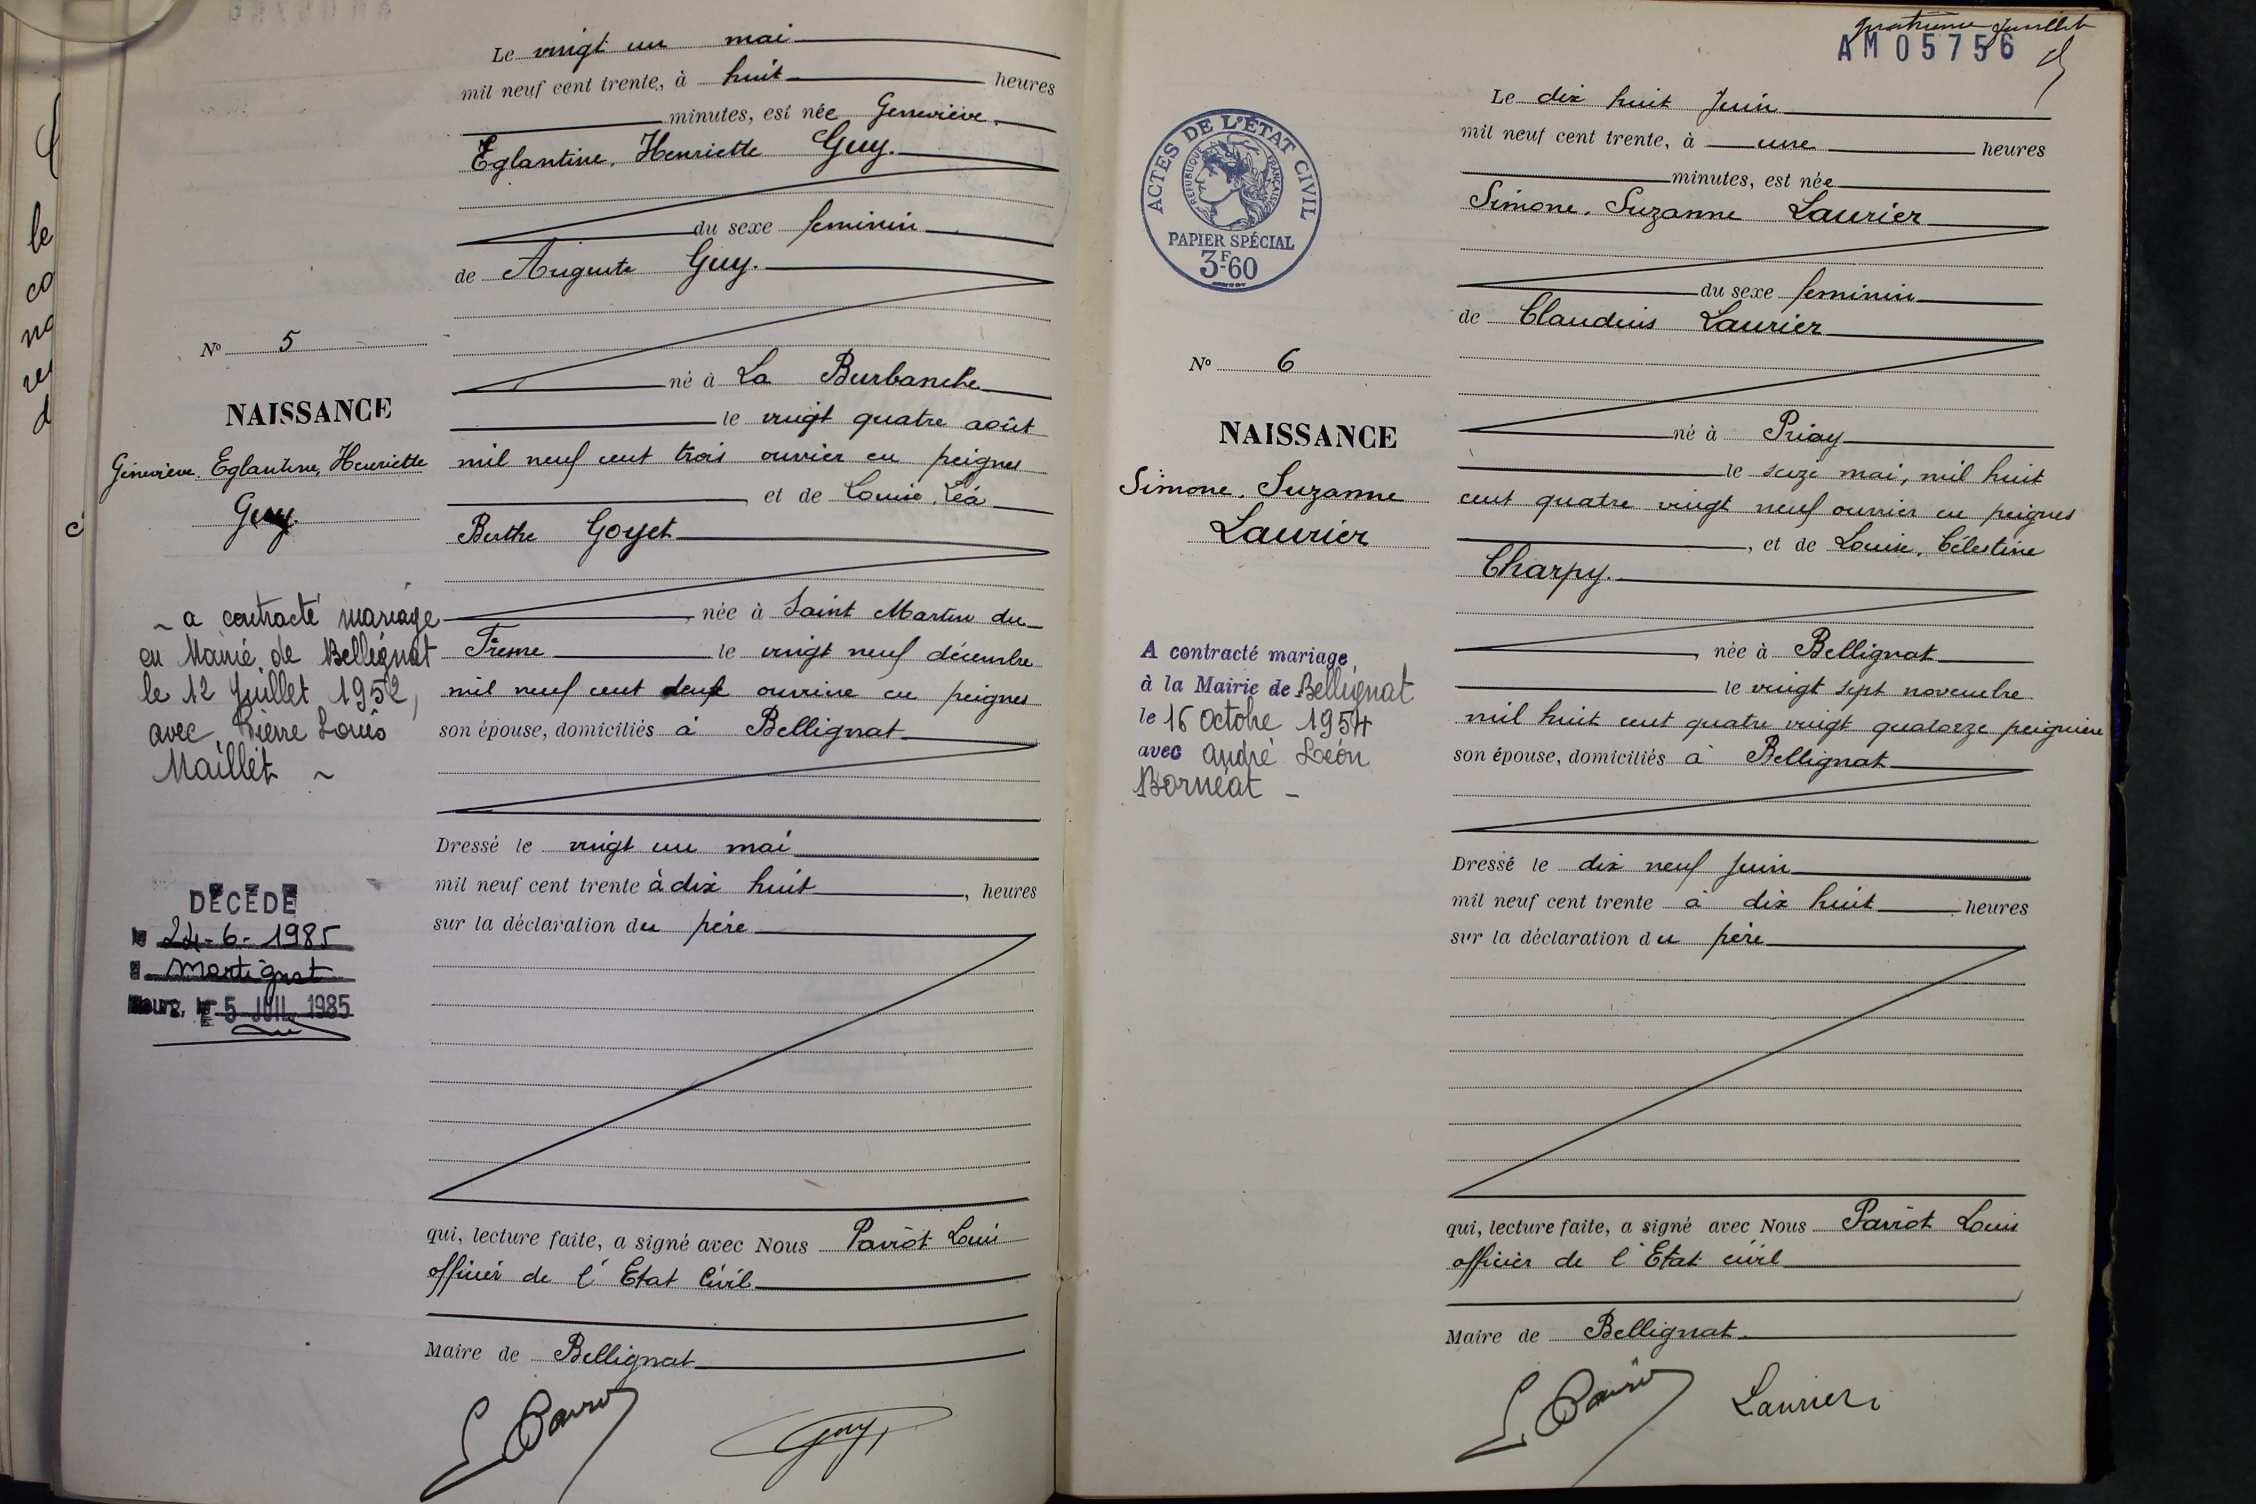 Le vingt un mai
mil neuf cent trente, à huit heures
minutes, est née Geneviève,
Eglantine, Henriette Guy.
du sexe feminin
de Auguste Guy.
né à La Burbanche
le vingt quatre août
mil neuf cent trois ouvrier en peignes
et de Louise, Léa
Berthe Goyet
née à Saint Martin du
Frêne le vingt neuf décembre
mil neuf cent deux ouvrière en peignes
son épouse, domiciliés à Bellignat
Dressé le vingt un mai
mil neuf cent trente à dix huit, heures
sur la déclaration du père
qui, lecture faite, a signé avec Nous Pariot Louis
officier de l'Etat Civil
Maire de Bellignat
Guy
No 5
NAISSANCE
Geneviève, Eglantine, Henriette
Guy.
a contracté mariage
en Mairie de Bellignat
le 12 Juillet 1952,
avec Pierre Louis
Maillet
DÉCÉDÉ
le 24-6-1985
à Martignat
Bourg, le 5 JUIL. 1985
le
co
no
d
quatrième feuillet
AM05756
Le dix huit Juin
mil neuf cent trente, à une heures
minutes, est née
Simone, Suzanne Laurier
du sexe feminin
de Claudius Laurier
né à Priay
le seize mai, mil huit
cent quatre vingt neuf ouvrier en peignes
, et de Louise, Célestine
Charpy.
, née à Bellignat
le vingt sept novembre
mil huit cent quatre vingt quatorze peignière
son épouse, domiciliés à Bellignat
Dressé le dix neuf juin
mil neuf cent trente à dix huit heures
sur la déclaration du père
qui, lecture faite, a signé avec Nous Pariot Louis
officier de l'Etat civil
Maire de Bellignat
Laurier
ACTES DE L'ÉTAT CIVIL
RÉPUBLIQUE FRANÇAISE
PAPIER SPÉCIAL
3F-60
No 6
NAISSANCE
Simone, Suzanne
Laurier
A contracté mariage
à la Mairie de Bellignat
le 16 Octobre 1954
avec André Léon
Bornéat